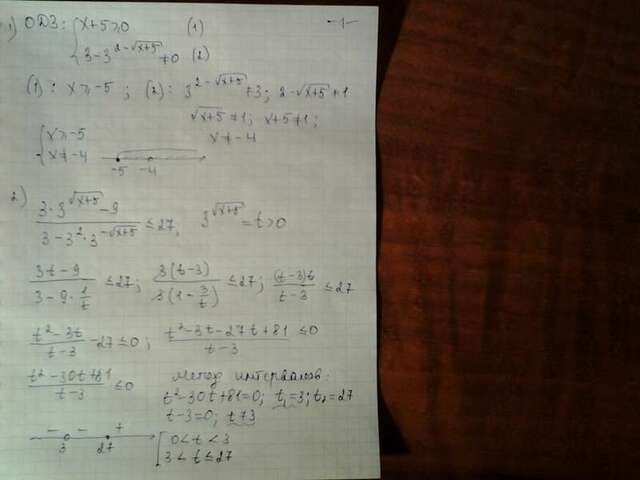 -1-
1) ОДЗ: { x+5≥0 (1)
3-3^{2-√(x+5)}≠0 (2)
(1): x≥-5; (2): 3^{2-√(x+5)}≠3; 2-√(x+5)≠1
√(x+5)≠1; x+5≠1;
x≠-4
{ x≥-5
x≠-4
-5 -4
2)
(3·3^{√(x+5)}-9)/(3-3²·3^{-√(x+5)}) ≤27, 3^{√(x+5)}=t>0
(3t-9)/(3-9·1/t) ≤27; (3(t-3))/(3(1-3/t)) ≤27; ((t-3)t)/(t-3) ≤27
(t²-3t)/(t-3) -27≤0; (t²-3t-27t+81)/(t-3) ≤0
(t²-30t+81)/(t-3) ≤0 Метод интервалов:
t²-30t+81=0; t₁=3; t₂=27
t-3=0; t≠3
- - +
3 27
[ 0<t<3
3<t≤27